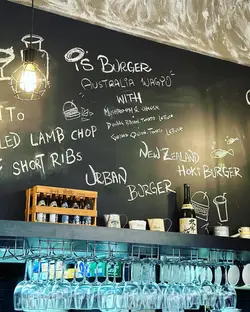 is Burger
Australia Wagyu
with
Mushroom & cheese
Double Bacon Tomato Lettuce
Bacon Onion Tomato Lettuce
to
led Lamb chop
Short Ribs
New Zealand
Hoki Burger
Urban
Burger